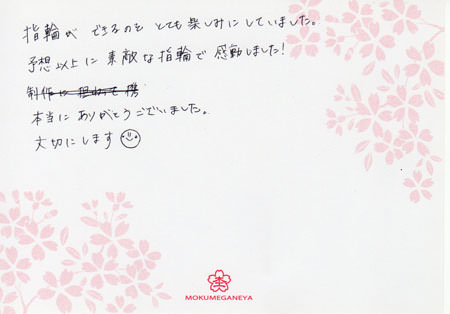 指輪ができるのをとても楽しみにしていました。
予想以上に素敵な指輪で感動しました!
制作に担わって携
本当にありがとうございました。
大切にします
MOKUMEGANEYA